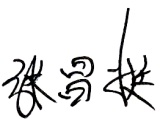 张昌挺